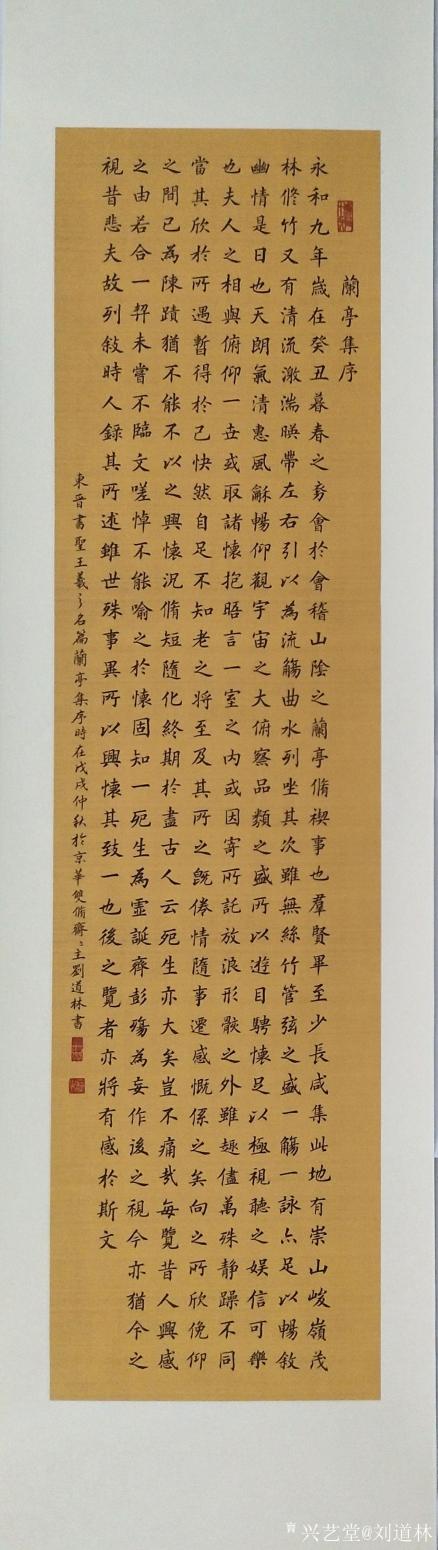 蘭亭集序
永和九年歲在癸丑暮春之初會於會稽山陰之蘭亭脩禊事也羣賢畢至少長咸集此地有崇山峻嶺茂
林修竹又有清流激湍暎帶左右引以為流觴曲水列坐其次雖無絲竹管弦之盛一觴一詠亦足以暢敘
幽情是日也天朗氣清惠風龢暢仰觀宇宙之大俯察品類之盛所以遊目騁懷足以極視聽之娛信可樂
也夫人之相與俯仰一世或取諸懷抱晤言一室之內或因寄所託放浪形骸之外雖趣儘萬殊靜躁不同
當其欣於所遇暫得於己快然自足不知老之將至及其所之既倦情隨事遷感慨係之矣向之所欣俛仰
之間已為陳蹟猶不能不以之興懷況脩短隨化終期於盡古人云死生亦大矣豈不痛哉每覽昔人興感
之由若合一契未嘗不臨文嗟悼不能喻之於懷固知一死生為虛誕齊彭殤為妄作後之視今亦猶今之
視昔悲夫故列敍時人錄其所述雖世殊事異所以興懷其致一也後之覽者亦將有感於斯文
東晉書聖王羲之名篇蘭亭集序時在戊戌仲秋於京華雙脩齋齋主劉道林書
兴艺堂@刘道林